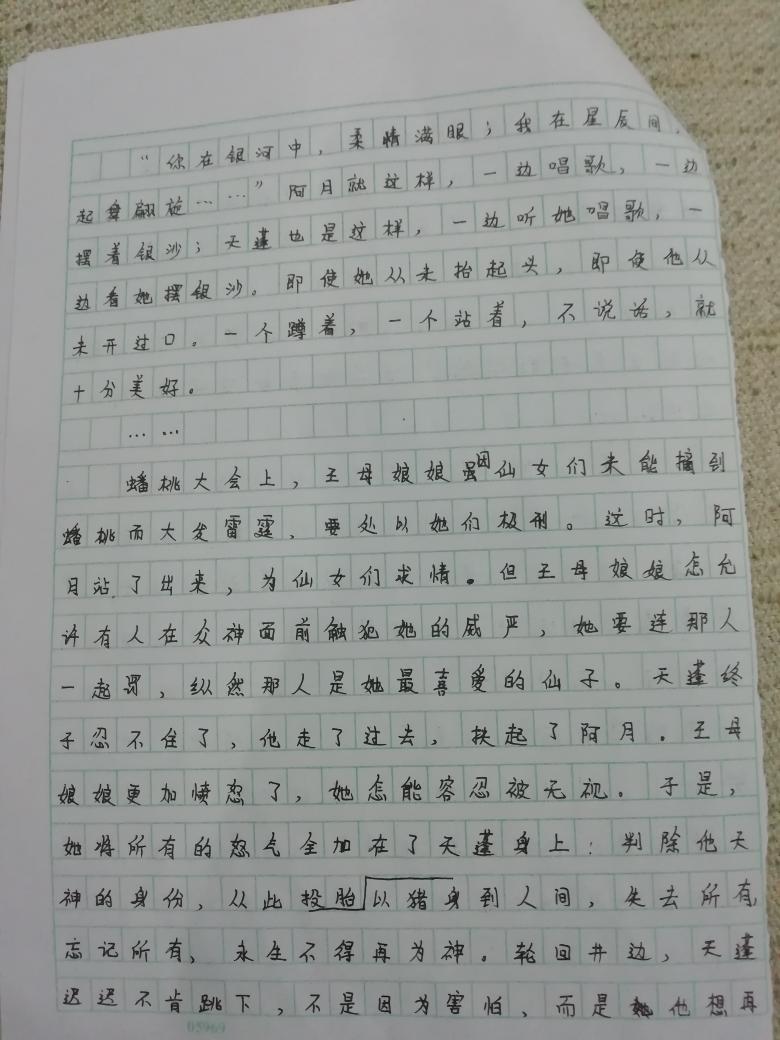 “你在银河中，柔情满眼；我在星辰间，
起舞翩旋……”阿月就这样，一边唱歌，一边
摆着银沙；天蓬也是这样，一边听她唱歌，一
边看她摆银沙。即使她从未抬起头，即使他从
未开过口。一个蹲着，一个站着，不说话，就
十分美好。
……
蟠桃大会上，王母娘娘因仙女们未能摘到
蟠桃而大发雷霆，要处以她们极刑。这时，阿
月站了出来，为仙女们求情。但王母娘娘怎允
许有人在众神面前触犯她的威严，她要连那人
一起罚，纵然那人是她最喜爱的仙子。天蓬终
于忍不住了，他走了过去，扶起了阿月。王母
娘娘更加愤怒了，她怎能容忍被无视。于是，
她将所有的怒气全加在了天蓬身上：判除他天
神的身份，从此投胎以猪身到人间，失去所有，
忘记所有，永生不得再为神。轮回井边，天蓬
迟迟不肯跳下，不是因为害怕，而是他想再
05969